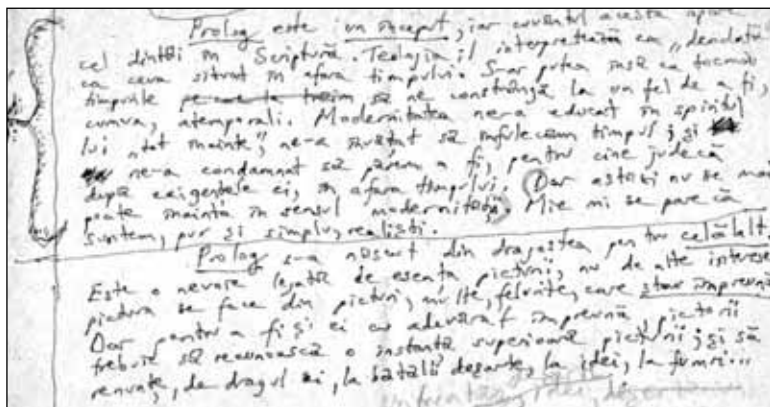 Prolog este un început, iar cuvântul acesta apare
cel dintâi în Scriptură. Teologia îl interpretează ca „deodată”
ca ceva situat în afara timpului. S-ar putea însă ca tocmai
timpurile pe care le trăim să ne constrângă la un fel de a fi,
cumva, atemporali. Modernitatea ne-a educat în spiritul
lui „tot înainte”, ne-a învățat să înfulecăm timpul și
ne-a condamnat să părem a fi, pentru cine judecă
după exigențele ei, în afara timpului. Dar astăzi nu se mai
poate înainta în sensul modernității. Mie mi se pare că
suntem, pur și simplu, realiști.
Prolog s-a născut din dragostea pentru celălalt.
Este o nevoie legată de esența picturii, nu de alte interese
pictura se face din picturi, multe, felurite, care stau împreună
Dar pentru a fi și ei cu adevărat împreună, pictorii
trebuie să recunoască o instanță superioară picturii; și să
renunțe, de dragul ei, la bătălii deșarte, la idei, la fumuri...
idei, deșertăciuni